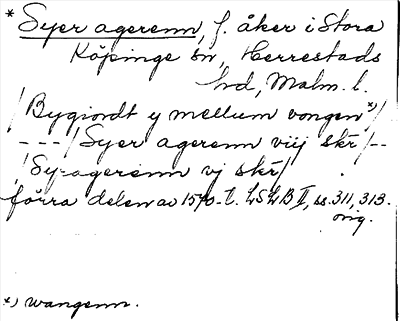 * Syer agerenn, f. åker i Stora
Köpinge sn, Herrestads
hd, Malm. l.
/Bygiordt y mellum vongen*)/
---/Syer agerenn viij skr/--
/Syragerenn vj skr/
förra delen av 1570-t. LSLB II, ss. 311, 313.
orig.
*) wangenn.